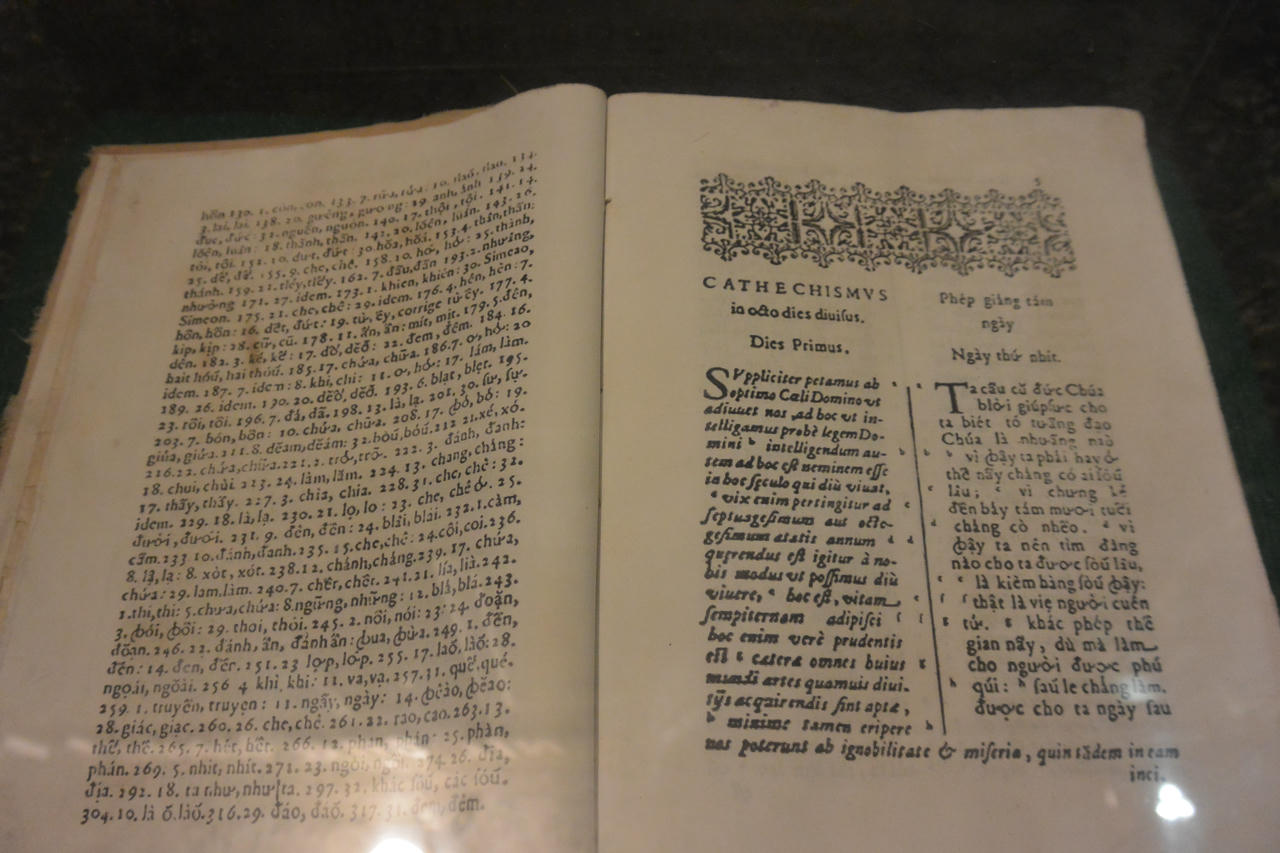 hŏn 130. 1. con, con. 133. 7. rữa, rửa: 10. tlaó, tlao. 134.
3. lai, lại. 138. 20. gưêng, gương: 29. anh, ảnh 139. 24.
đưc, đức: 31. nguên, nguon. 140. 17. thội, tội. 141. 14.
lŏên, luân: 18. thành, thần. 142. 20. lŏên, luân. 143. 26.
tòi, tôi. 152. 10. dưt, đưt: 30. hŏa, hŏá. 153. 4. thăn, thần:
25. dế, đế. 155. 9. che, chê. 158. 10. hơ, hớ: 25. thành,
thánh. 159. 21. tiéy, tiếy. 162. 7. đấu, đăn 193. 2. nhưíng,
nhường 171. 27. idem. 173. 1. khien, khién: 30. Simeao,
Simeon. 175. 21. che, chê: 29. idem. 176. 4. hển, hèn: 7.
hôn, hồn: 16. dết, đứt: 19. từ, êy, corrige từ êy. 177. 4.
kip, kịp: 28. cữ, cũ. 178. 11. ẩn, ăn: mít, mịt. 179. 5. đên,
dến. 182. 3. kẻ, kể: 17. đờ, dĕŏ: 22. đem, đêm. 184. 16.
bait hóú, hai thóúi. 185. 17. chứa, chữa. 186. 7. ơ, hớ: 20
idem. 187. 7. idem: 8. khi, chỉ: 11. ơ, hớ: 17. lám, làm.
189. 26. idem. 190. 20. dĕŏ, dĕŏ. 193. 6. blạt, blẹt. 195.
23. rôi, tôi. 196. 7. đá, đã. 198. 13. là, lạ. 201. 30. sư, sự.
203. 7. bón, bôn: 10. chứa, chữa. 208. 17. bó, bỏ: 19.
giúa, giứa. 211. 8. dĕam, dĕám: 32. bóú, bốú. 212 21. xé, xó.
216. 22. chứa, chữa. 221. 2. trở, trở. 222. 3. đánh, đanh:
18. chui, chùi. 223. 24. lâm, lằm. 224. 13. chang, chảng:
17. thấy, thầy. 227. 3. chia, chịa. 228. 31. che, chê: 32.
idem. 229. 18. là, lạ. 230. 21. lọ, lo: 23. che, chê ơ. 25.
đưòi, đưới. 231. 9. đên, đến: 24. blải, blai. 232. 1. cảm,
cấm. 233 10. đánh, đanh. 235. 15. che, chê: 24. côi, coi. 236.
8. là, lạ: 8. xòt, xót. 238. 12. chánh, chảng. 239. 17. chứa,
chứa: 29. lam, làm. 240. 7. chết, chêt. 241. 21. lía, lià. 242.
1. thi, thì: 5. chưa, chứa: 8. ngững, nhũng: 12. blả, blá. 243.
3. bói, bôi: 29. thoi, thòi. 245. 2. nôi, nói: 23: 24. đoạn,
đŏạn. 246. 22. đánh, ẩn, đánh ăn: bua, bùa. 249. 1. đên,
đến: 14. đen, đér. 251. 23 lợp, lớp. 255. 17. laŏ, lảŏ: 28.
ngoại, ngŏài. 256 4 khì, khi: 11. va, và. 257. 31. quê, qué.
259. 1. truyền, truyẹn: 11. ngấy, ngày: 14. bĕào, bĕão:
28. giác, giạc. 260. 26. che, chê. 261. 22. rao, cao. 263. 13.
thế, thê. 265. 7. hêt, bêt. 266. 12. phan, phán: 25. phàn,
phán. 269. 5. nhit, nhít. 271. 23. ngòi, ngôi. 274. 26. địa,
địa. 292. 18. ta như, như ta. 297. 32. khác sóú, các sóú.
304. 10. là ŏ. làŏ. 316. 29. đáo, đáŏ. 317. 31. đem, đêm.
5
CATHECHISMVS
in octo dies diuisus.
Dies Primus.
SVppliciter petamus ab
optimo Cæli Domino vt
adiuuet nos, ad hoc vt in-
telligamus probè legem Do-
mini ᵇ intelligendum au-
tem ad hoc est neminem esse
in hoc sęculo qui diù viuat,
ᶜ vix enim pertingitur ad
septuagesimum aut octo-
gesimum ætatis annum ᵈ
quęrendus est igitur à no-
bis modus vt possimus diù
viuere, ᵉ hoc est, vitam
sempiternam adipisci ᶠ
hoc enim verè prudentis
est ᵍ cæteræ omnes huius
mundi artes quamuis diui-
tijs acquirendis sint aptæ,
ʰ minimè tamen eripere
nos poterunt ab ignobilitate & miseria, quin tãdem in eam
inci.
Phép giảng tám
ngày
Ngày thứ nhít.
Ta cầu cŭ đức Chúa
blời giúp sức cho
ta biết tỏ tưàng đạo
Chúa là nhường nào
ᵇ vì bậy ta phải hay ở
thế nầy chẳng có ai sóú
lâu; ᶜ vì chưng kể
đến bảy tám mươi tuổi
chảng cò nhềo. ᵈ vì
bậy ta nên tìm đàng
nào cho ta được sóú lâu,
ᵉ là kiếm hằng sóú bậy:
ᶠ thật là việ người cuên
tử. ᵍ khác phép thế
gian nầy, dù mà làm
cho người được phú
qúi: ʰ saú le chảng làm
được cho ta ngày sau